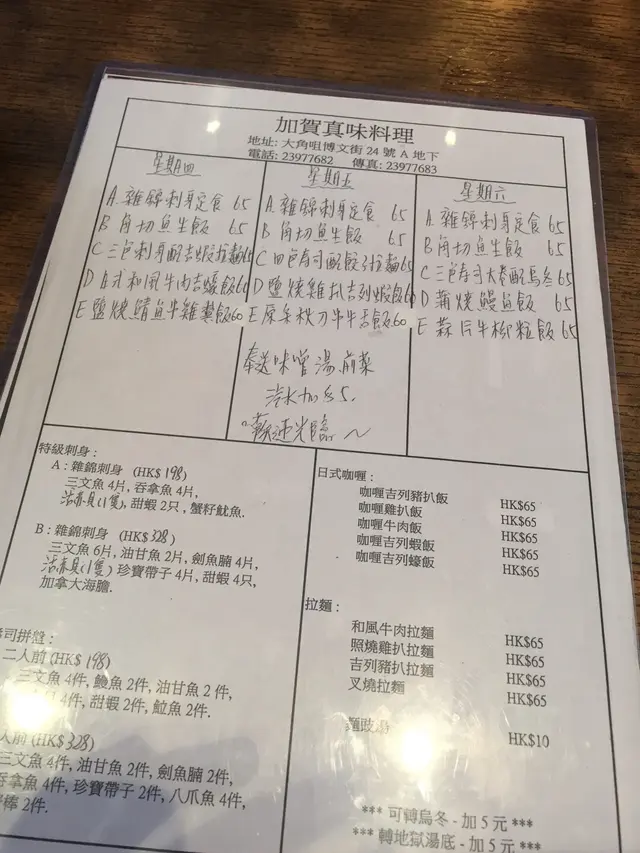 加賀真味料理
地址: 大角咀博文街 24 號 A 地下
電話: 23977682 傳真: 23977683
星期四
A. 雜錦刺身定食 65
B 角切魚生飯 65
C 三色刺身配吉蝦拉麵65
D 日式和風牛肉吉蠔飯60
E 鹽燒鯖魚牛雞飯60
星期五
A. 雜錦刺身定食 65
B 角切魚生飯 65
C 四色寿司配餃子拉麵65
D 鹽燒雞扒吉列蝦飯60
E 秋刀牛舌飯60
星期六
A 雜錦刺身定食 65
B 角切魚生飯 65
C 三色寿司大卷配烏冬65
D 蒲燒鰻魚飯 65
E 蒜片牛柳粒飯 65
奉送味噌湯.前菜
汽水加 5.
歡迎光臨 ~
特級刺身:
A : 雜錦刺身 (HK$ 198)
三文魚 4片, 吞拿魚 4片,
活赤貝(1隻), 甜蝦 2只, 蟹籽魷魚.
B : 雜錦刺身 (HK$ 328)
三文魚 6片, 油甘魚 2片, 劍魚腩 4片,
活赤貝(1隻) 珍寶帶子 4片, 甜蝦 4只,
加拿大海膽.
司拼盤 :
二人前 (HK$ 198)
三文魚 4件, 鰻魚 2件, 油甘魚 2 件,
4件, 甜蝦 2件, 魚 2件.
人前 (HK$328)
三文魚 4件, 油甘魚 2件, 劍魚腩 2件,
吞拿魚 4件, 珍寶帶子 2件, 八爪魚 4件,
棒 2件.
日式咖喱 :
咖喱吉列豬扒飯 HK$65
咖喱雞扒飯 HK$65
咖喱牛肉飯 HK$65
咖喱吉列蝦飯 HK$65
咖喱吉列蠔飯 HK$65
拉麵 :
和風牛肉拉麵 HK$65
照燒雞扒拉麵 HK$65
吉列豬扒拉麵 HK$65
叉燒拉麵 HK$65
麵豉湯 HK$10
*** 可轉烏冬 - 加 5 元 ***
*** 轉地獄湯底 - 加 5 元 ***